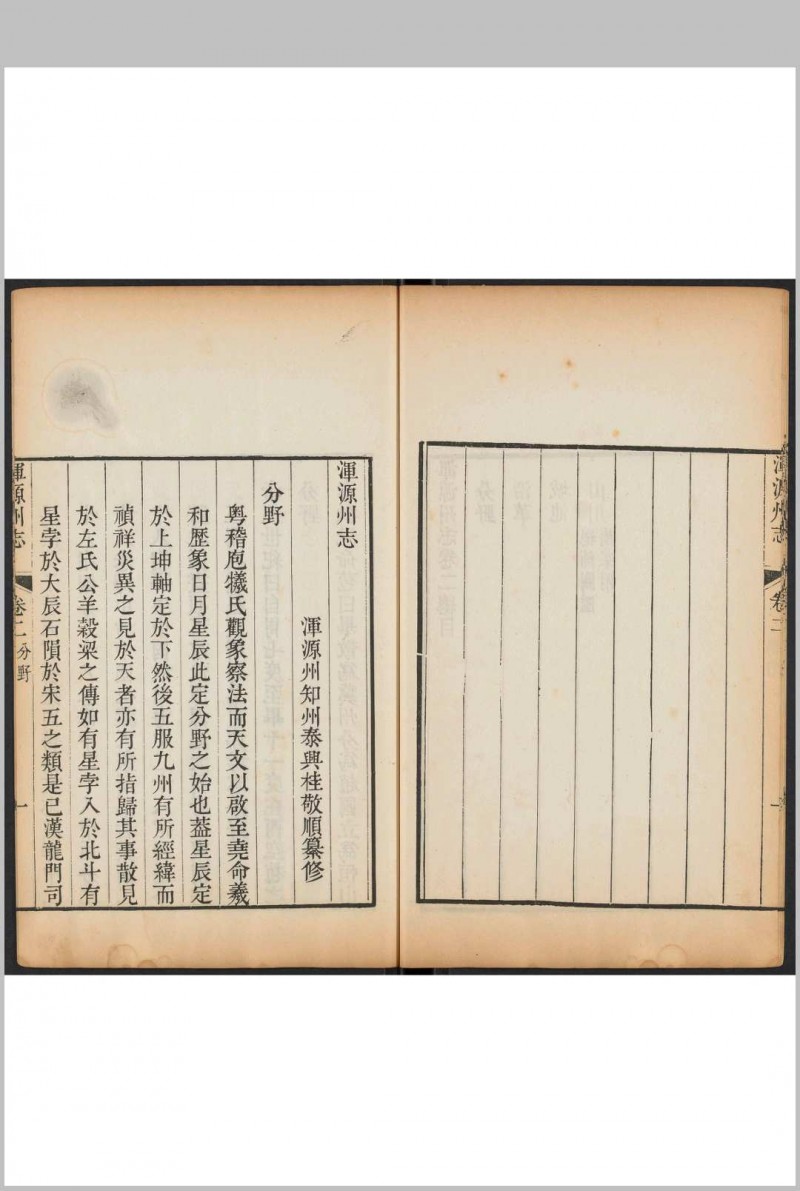 渾源州志
卷二
渾源州志
渾源州知州泰興桂敬順纂修
分野
粵稽庖犧氏觀象察法而天文以啟至堯命羲
和歷象日月星辰此定分野之始也葢星辰定
於上坤軸定於下然後五服九州有所經緯而
禎祥災異之見於天者亦有所指歸其事散見
於左氏公羊穀梁之傳如有星孛入於北斗有
星孛於大辰石隕於宋五之類是已漢龍門司
渾源州志
卷二
分野
一